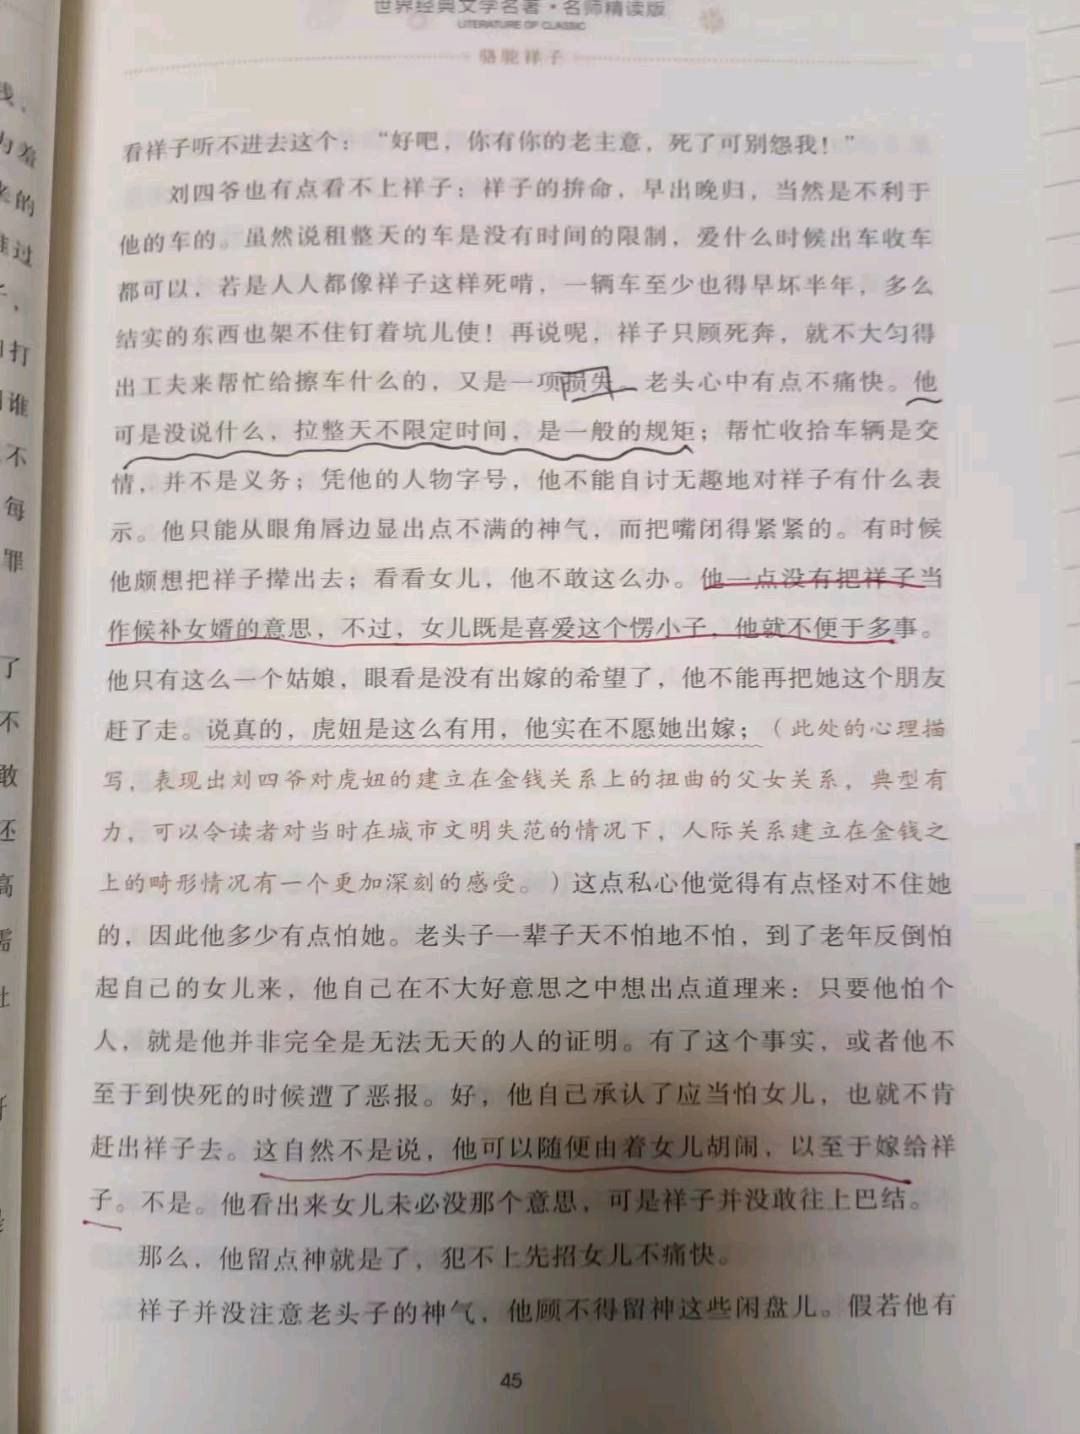 世界经典文学名著·名师精读版
LITERATURE OF CLASSIC
骆驼祥子
看祥子听不进去这个：“好吧，你有你的老主意，死了可别怨我！”
刘四爷也有点看不上祥子：祥子的拚命，早出晚归，当然是不利于
他的车的。虽然说租整天的车是没有时间的限制，爱什么时候出车收车
都可以，若是人人都像祥子这样死啃，一辆车至少也得早坏半年，多么
结实的东西也架不住钉着坑儿使！再说呢，祥子只顾死奔，就不大匀得
出工夫来帮忙给擦车什么的，又是一项损失。老头心中有点不痛快。他
可是没说什么，拉整天不限定时间，是一般的规矩；帮忙收拾车辆是交
情，并不是义务；凭他的人物字号，他不能自讨无趣地对祥子有什么表
示。他只能从眼角唇边显出点不满的神气，而把嘴闭得紧紧的。有时候
他颇想把祥子撵出去；看看女儿，他不敢这么办。他一点没有把祥子当
作候补女婿的意思，不过，女儿既是喜爱这个愣小子，他就不便于多事。
他只有这么一个姑娘，眼看是没有出嫁的希望了，他不能再把她这个朋友
赶了走。说真的，虎妞是这么有用，他实在不愿她出嫁；（此处的心理描
写，表现出刘四爷对虎妞的建立在金钱关系上的扭曲的父女关系，典型有
力，可以令读者对当时在城市文明失范的情况下，人际关系建立在金钱之
上的畸形情况有一个更加深刻的感受。）这点私心他觉得有点怪对不住她
的，因此他多少有点怕她。老头子一辈子天不怕地不怕，到了老年反倒怕
起自己的女儿来，他自己在不大好意思之中想出点道理来：只要他怕个
人，就是他并非完全是无法无天的人的证明。有了这个事实，或者他不
至于到快死的时候遭了恶报。好，他自己承认了应当怕女儿，也就不肯
赶出祥子去。这自然不是说，他可以随便由着女儿胡闹，以至于嫁给祥
子。不是。他看出来女儿未必没那个意思，可是祥子并没敢往上巴结。
那么，他留点神就是了，犯不上先招女儿不痛快。
祥子并没注意老头子的神气，他顾不得留神这些闲盘儿。假若他有
45